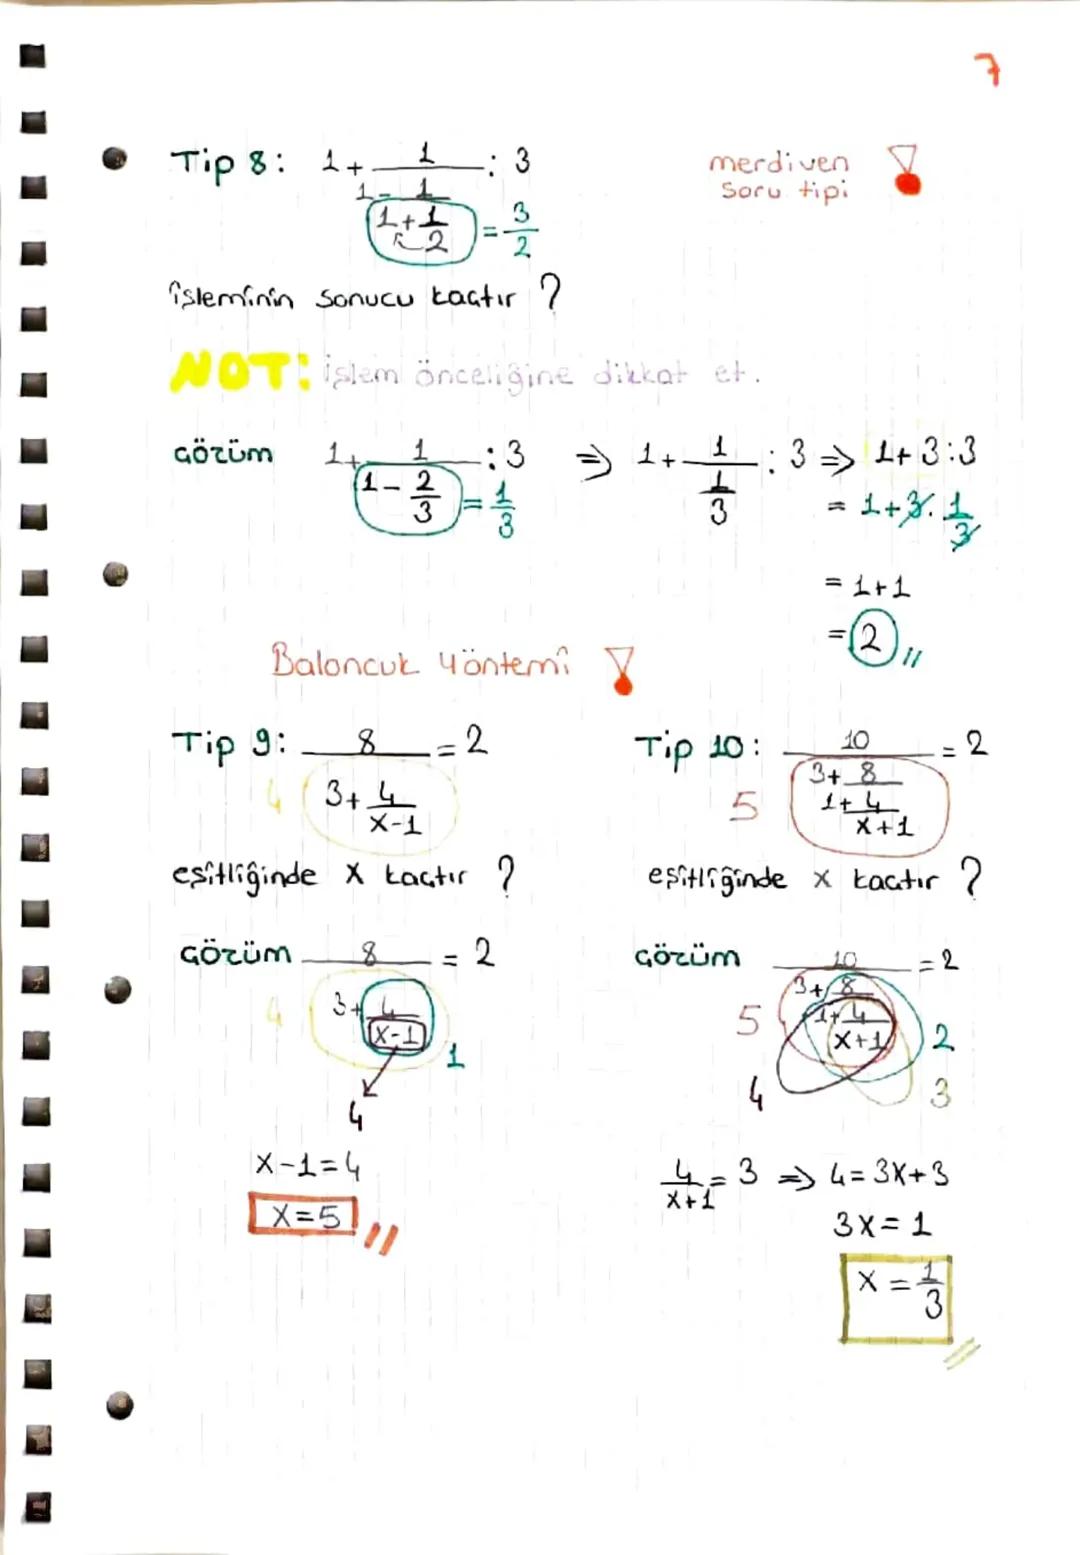 7
Tip 8: 1 + 1/(1 - 1/(1 + 1/2)) : 3
= 3/2
merdiven
soru tipi
işleminin sonucu kaçtır ?
NOT: işlem önceliğine dikkat et.
Çözüm 1 + 1/(1 - 2/3) : 3 ⇒ 1 + 1/(1/3) : 3 ⇒ 1 + 3 : 3
= 1/3
= 1 + 3 . 1/3
= 1 + 1
= 2 //
Baloncuk Yöntemi
Tip 9: 8/(3 + 4/(x-1)) = 2
4
eşitliğinde x kaçtır ?
Çözüm 8/(3 + 4/(x-1)) = 2
4
1
4
x-1=4
x=5 //
Tip 10: 10/(3 + 8/(1 + 4/(x+1))) = 2
5
eşitliğinde x kaçtır ?
Çözüm 10/(3 + 8/(1 + 4/(x+1))) = 2
5
2
4
3
4/(x+1) = 3 ⇒ 4 = 3x+3
3x = 1
x = 1/3 //